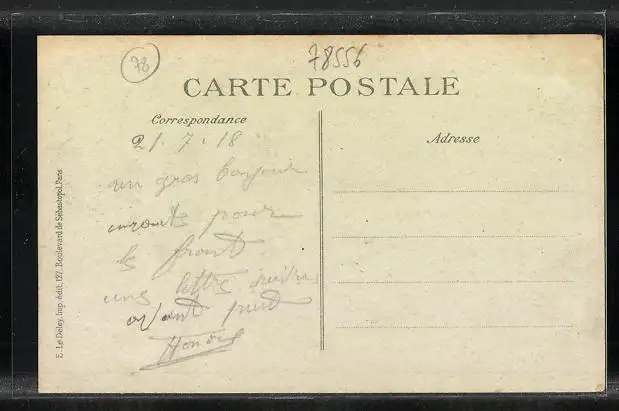 78
78556
CARTE POSTALE
Correspondance
Adresse
21.7.18
un gros bonjour
le front
une lettre suivra
avant
E. Le Deley, Imp. édit. 127, Boulevard de Sébastopol, Paris